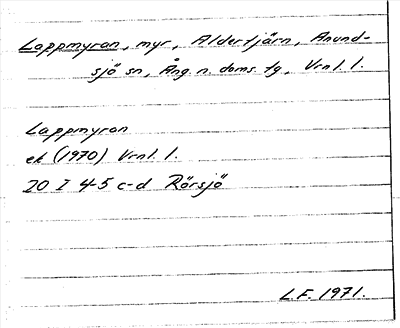 Lappmyran, myr, Aldertjärn, Anund-
sjö sn, Ång. n. doms. tg, Vrnl. l.
Lappmyran
ek (1970) Vrnl. l.
20 I 4-5 c-d Rörsjö
L.F. 1971.